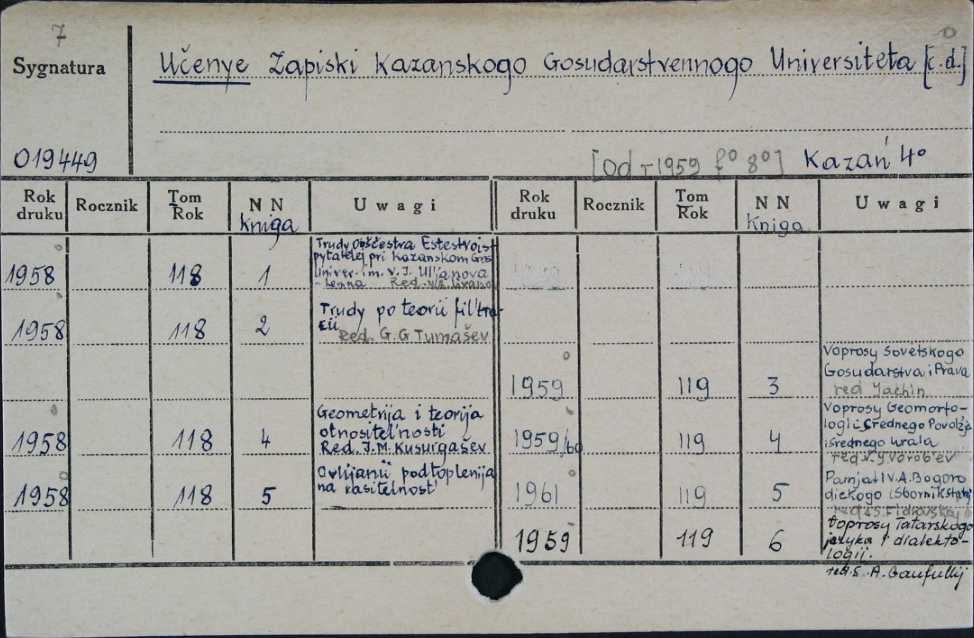 7
Sygnatura
Učenye Zapiski Kazanskogo Gosudarstvennogo Universiteta [c.d.]
019449
[Od - 1959 f° 8°] Kazań 4°
Rok druku Rocznik Tom Rok NN kniga Uwagi Rok druku Rocznik Tom Rok NN Kniga Uwagi
1958 118 1 Trudy obščestva Estestvois-
pytatelej pri Kazanskom Gos
Univer. im. V. I. Ul'janova
-Lenina Red.
1958 118 2 Trudy po teorii fil'tra-
cii
Red. G.G Tumašev
1958 118 4 Geometrija i teorija
otnositel'nosti
Red. I.M. Kusurgašev
1958 118 5 O vlijanii podtoplenija
na rasitelnost'
1959 119 3 Voprosy Sovetskogo
Gosudarstva i Prava
red Jachin
1959/60 119 4 Voprosy Geomorfo-
logii Srednego Povolžja
i Srednego Urala
red. Vorob'ev
1961 119 5 Pamjati V.A. Bogoro
dickogo (Sbornik statej
red.
1959 119 6 Voprosy Tatarskogo
jezyka i dialekto-
logij.
red.